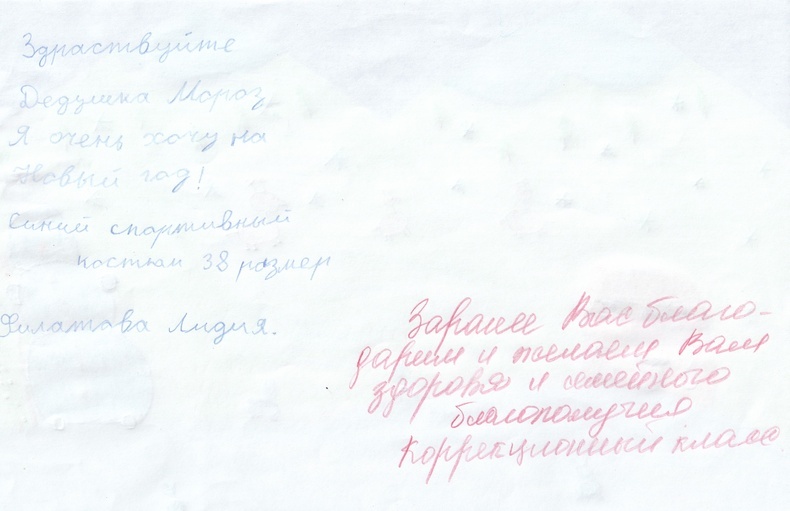 Здраствуйте
Дедушка Мороз,
Я очень хочу на
Новый год!
Синий спортивный
костюм 38 размер
Филатова Лидия.
Заранее Вас благо-
дарим и желаем Вам
здоровья и семейного
благополучия
Коррекционный класс